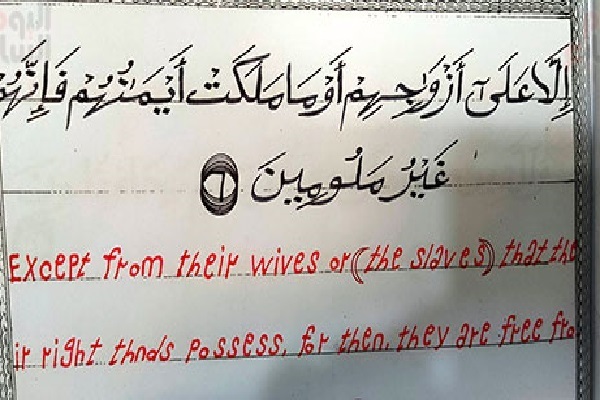 إِلَّا عَلَىٰٓ أَزْوَٰجِهِمْ أَوْ مَا مَلَكَتْ أَيْمَـٰنُهُمْ فَإِنَّهُمْ
غَيْرُ مَلُومِينَ ٦
Except from their wives or (the slaves) that the
ir right thnds possess, for then, they are free fro